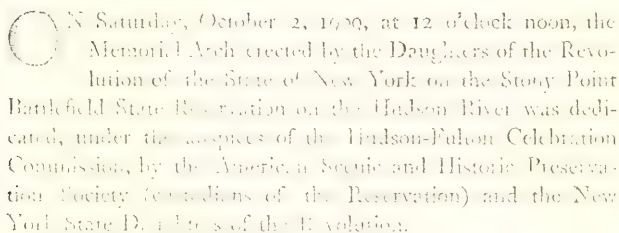 ON Saturday, October 2, 1909, at 12 o'clock noon, the
Memorial Arch erected by the Daughters of the Revo-
lution of the State of New York on the Stony Point
Battlefield State Reservation on the Hudson River was dedi-
cated, under the auspices of the Hudson-Fulton Celebration
Commission, by the American Scenic and Historic Preserva-
tion Society (custodians of the Reservation) and the New
York State Daughters of the Revolution.